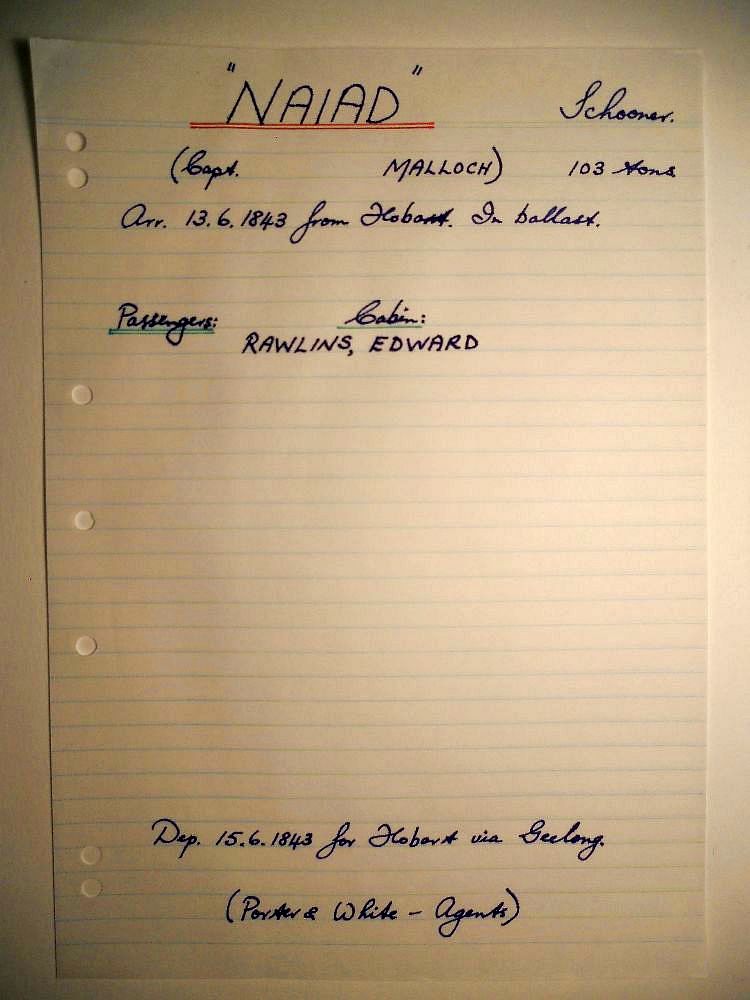 "NAIAD" Schooner.
(Capt. MALLOCH) 103 tons
Arr. 13.6.1843 from Hobart. In ballast.
Passengers: Cabin:
RAWLINS, EDWARD
Dep. 15.6.1843 for Hobart via Geelong.
(Porter & White - Agents)